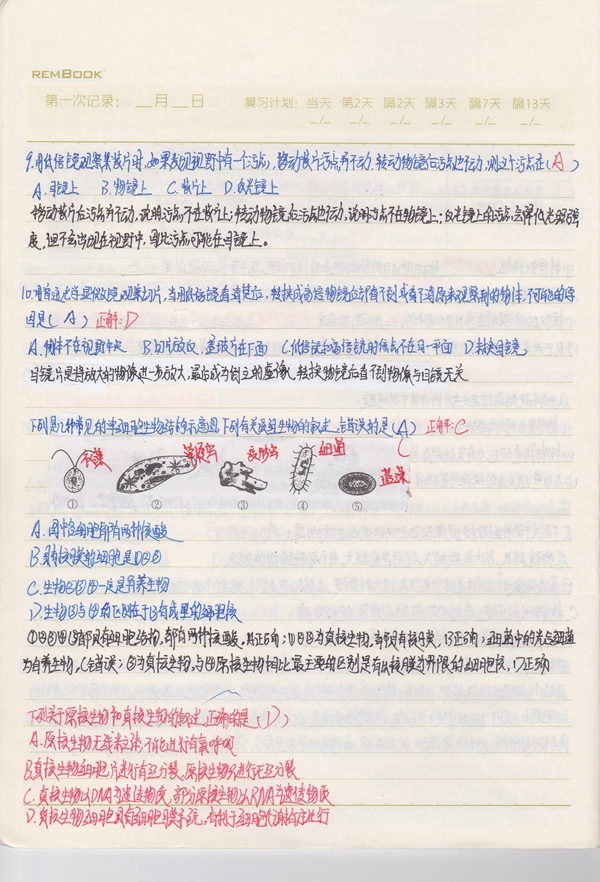 REMBOOK
第一次记录: __月__日 复习计划: 当天 第2天 隔2天 隔3天 隔7天 隔13天
-/- -/- -/- -/- -/- -/-
9.用低倍镜观察某装片时,如果发现视野中有一个污点,移动装片污点不动.转动物镜后污点也不动,则这个污点在(A)
A.目镜上 B.物镜上 C.装片上 D.反光镜上
移动装片后污点不动,说明污点不在装片上;转动物镜后污点也不动,说明污点不在物镜上;反光镜上的污点,会降低光照强
度,但不会出现在视野中.因此污点可能在目镜上。
10.用普通光学显微镜观察切片,当用低倍镜看清楚后,转换成高倍物镜后却看不到或看不清原来观察到的物体.不可能的原
因是(A) 正解:D
A.物体不在视野中央 B.切片放反,盖玻片在下面 C.低倍镜与高倍镜的焦点不在同一平面 D.未换目镜
目镜只是将放大的物像进一步放大,最后成为倒立的虚像,转换物镜后看不到物像与目镜无关
下列是几种常见的单细胞生物结构示意图.下列有关该组生物的叙述,错误的是(A) 正解:C
C
衣藻 草履虫 变形虫 细菌 蓝藻
① ② ③ ④ ⑤
A.图中各细胞都有两种核酸
B.具有核膜的细胞是①②③
C.生物②③④一定是异养生物
D.生物③与④的区别在于③有成形的细胞核
①②③④⑤都具有细胞结构,都有两种核酸.A正确;①②③为真核生物,都具有核膜,B正确;细菌中的光合细菌
为自养生物,C错误;③为真核生物,与④原核生物相比最主要的区别是有以核膜为界限的细胞核,D正确
下列关于原核生物和真核生物的叙述,正确的是(D)
A.原核生物无线粒体,不能进行有氧呼吸
B.真核生物细胞只进行有丝分裂,原核生物只进行无丝分裂
C.真核生物以DNA为遗传物质,部分原核生物以RNA为遗传物质
D.真核生物细胞具有细胞膜系统,有利于细胞代谢有序进行